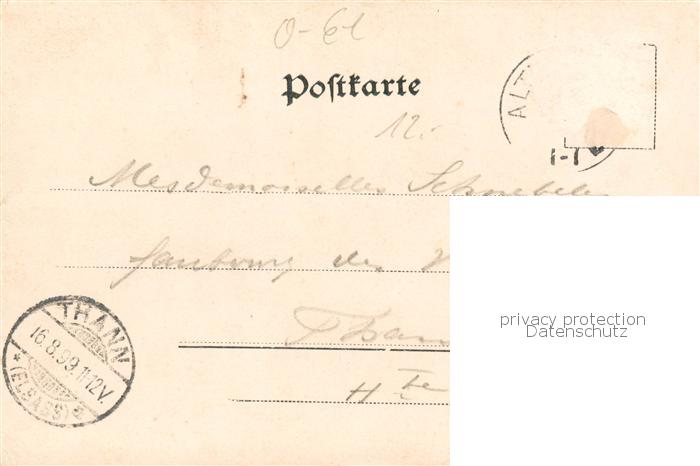 O-El
Postkarte
ALT
12.-
1-1
Mesdemoiselles
faubourg des
Than
Hte
THANN
16.8.99.11-12V.
* (ELSASS) a
privacy protection
Datenschutz